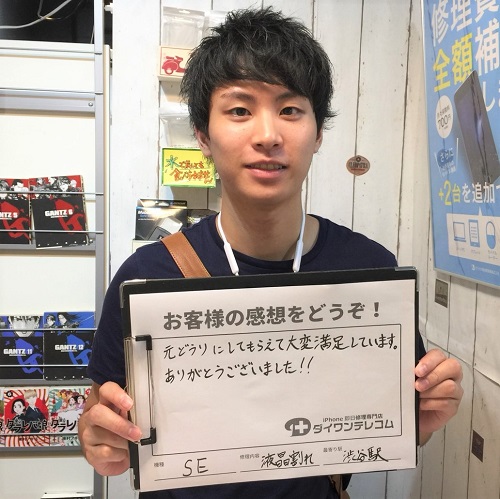 修理費
全額補
+2台を追加
GANTZ
GANTZ
GANTZ
GANTZ
お客様の感想をどうぞ！
元どうりにしてもらえて大変満足しています。
ありがとうございました!!
iPhone 即日修理専門店
ダイワンテレコム
機種 SE 修理内容 液晶割れ 最寄り駅 渋谷駅